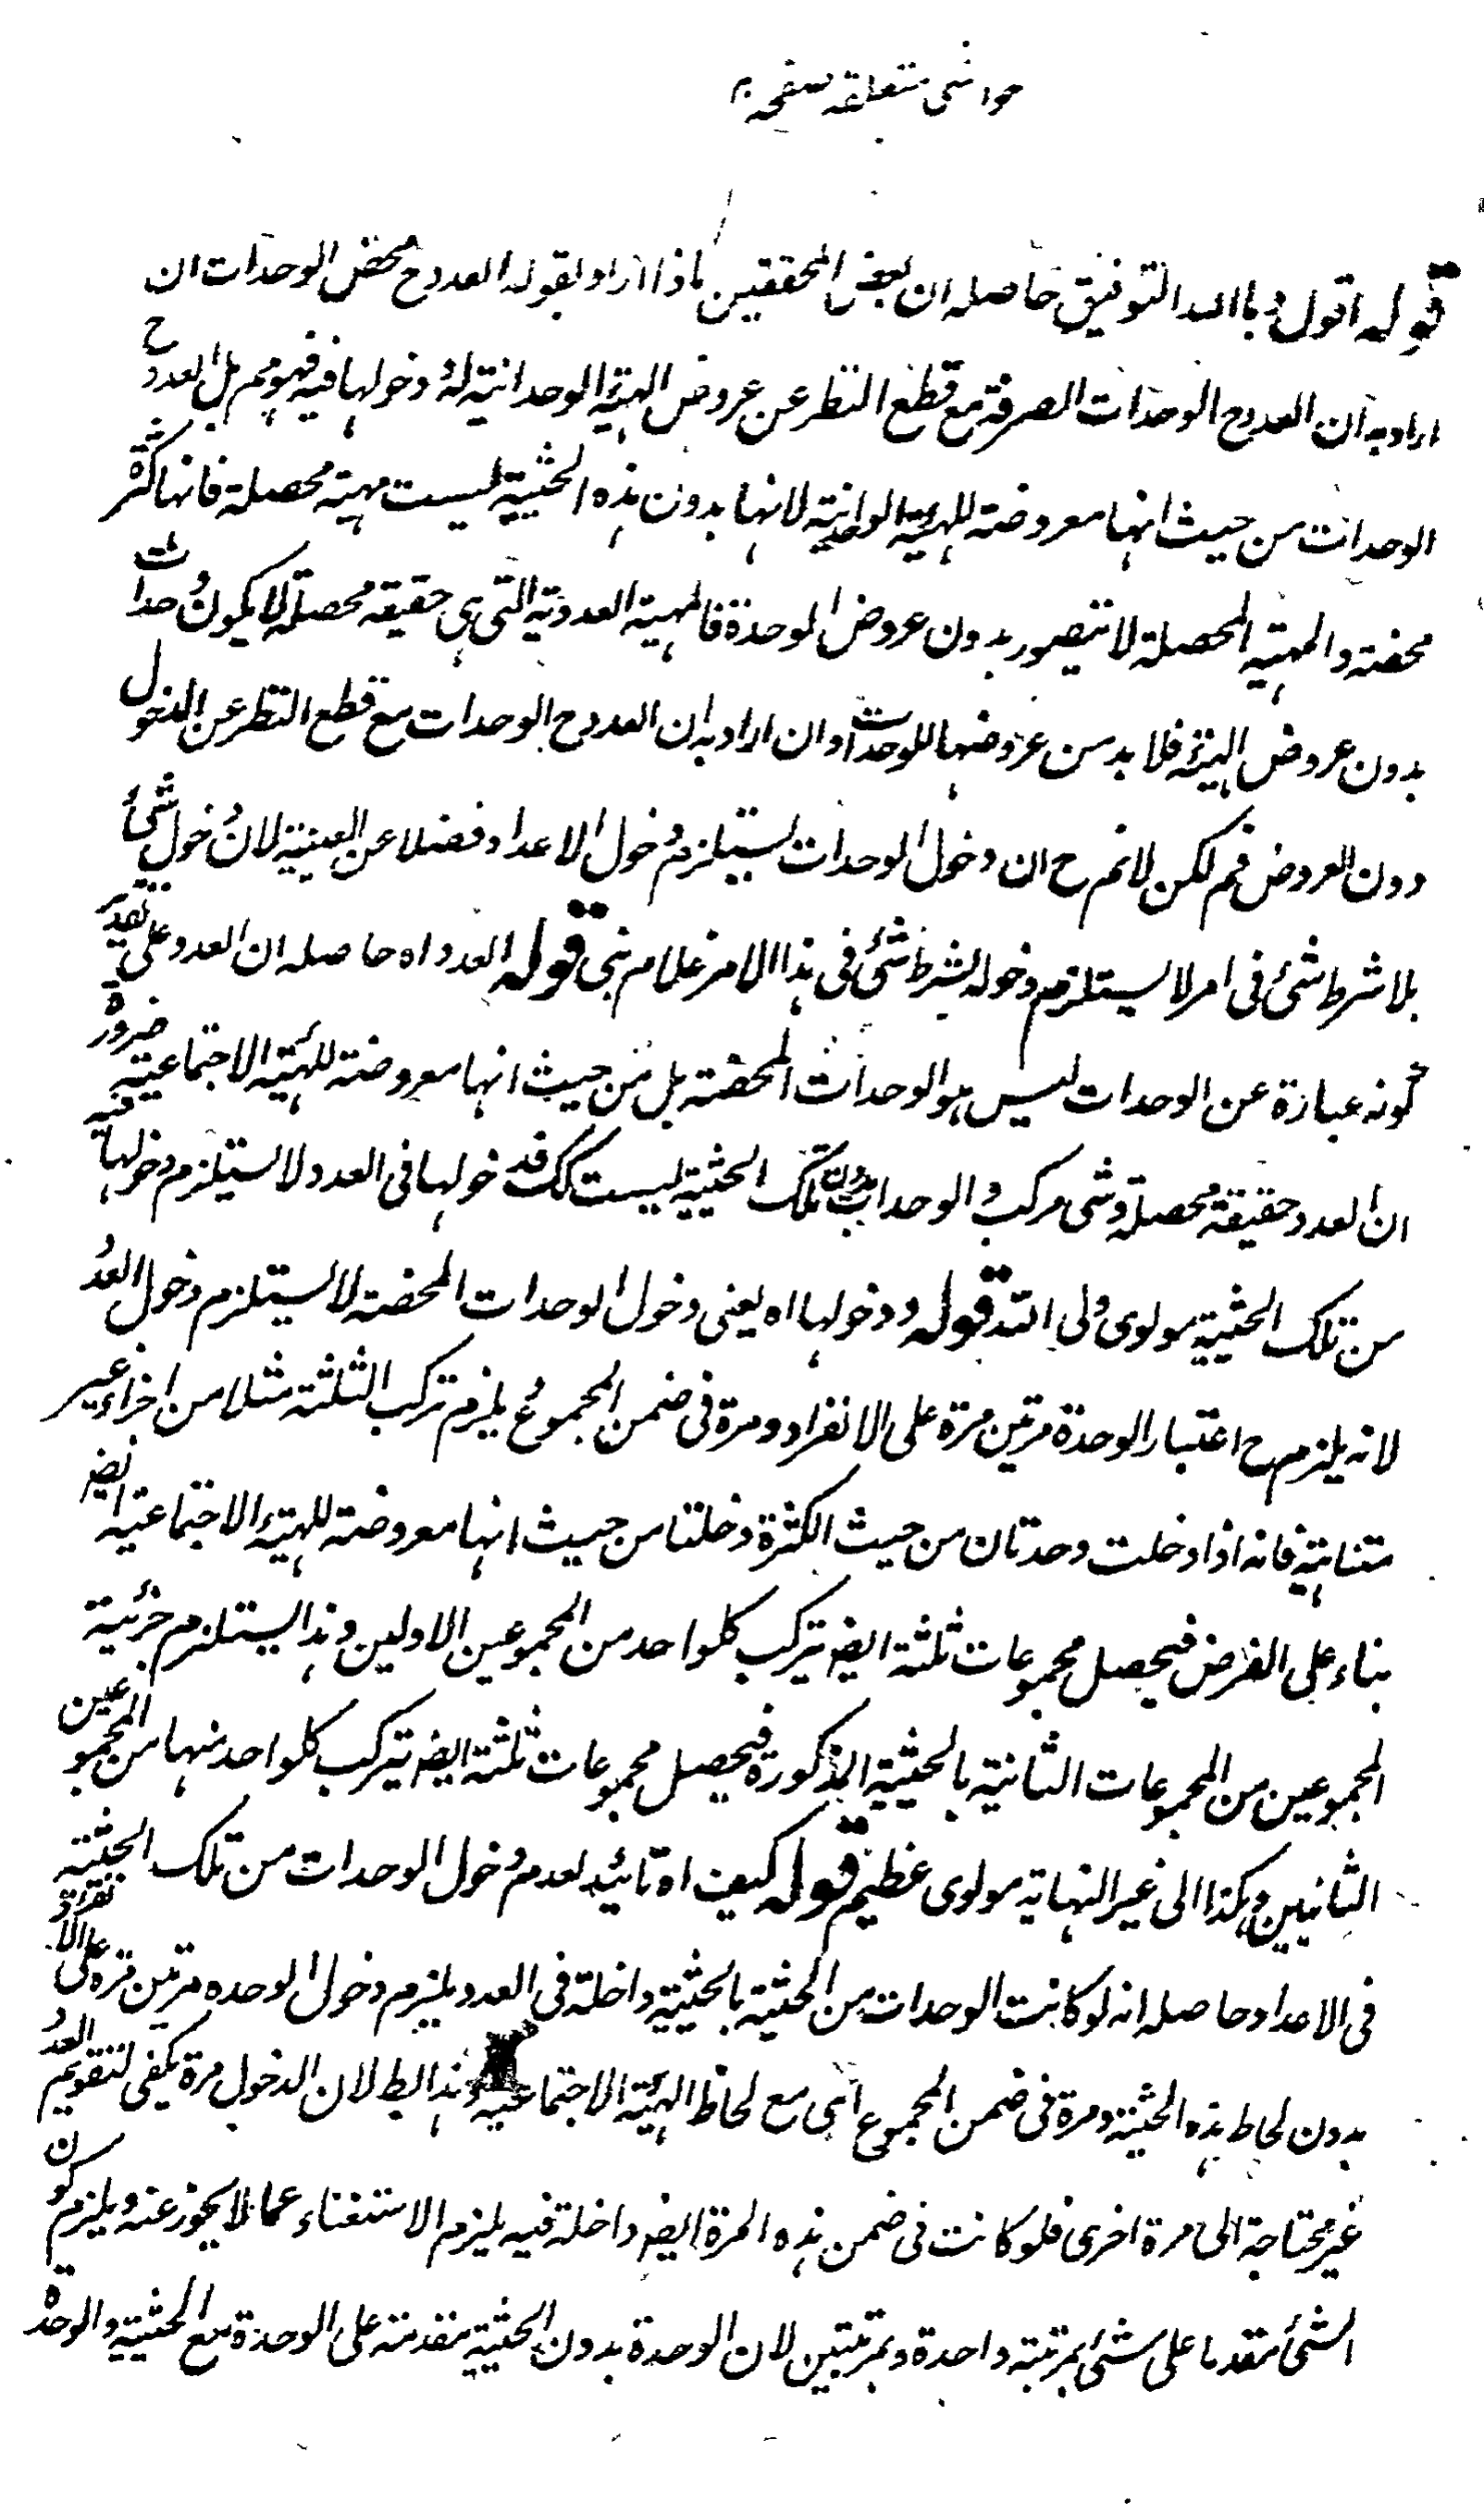 حواشی متعلقه صفحه
قوله اقول و بالله التوفیق حاصله ان بعض المحققین ماذا اراد بقوله العدد ح محض الوحدات ان
اراد به ان العدد ح الوحدات الصرفة مع قطع النظر عن عروض الهیئة الوحدانیة له و دخولها فیه فهو مم بل العدد ح
الوحدات من حیث انها معروضة للهیئة الوحدانیة لانها بدون هذه الحیثیة لیست مهیة محصلة فانها کثرة
محضة و المهیة المحصلة لا تتصور بدون عروض الوحدة فالمهیة العددیة التی هی حقیقة محصلة لا یکون وحدات
بدون عروض الهیئة فلا بد من عروضها للوحدات و ان اراد به ان العدد ح الوحدات مع قطع النظر عن الدخول
دون العروض فم لکن لا نم ح ان دخول الوحدات یستلزم دخول الاعداد فضلا عن العینیة لان دخول شئ
بلا شرط شئ فی امر لا یستلزم دخوله بشرط شئ فی هذا الامر غلام نبی قوله العدد اه حاصله ان العدد علی تقدیر
کونه عبارة عن الوحدات لیس هو الوحدات المحضة بل من حیث انها معروضة للهیئة الاجتماعیة ضرورة
ان العدد حقیقة محصلة و شی مرکب و الوحدات بدون تلک الحیثیة لیست کک فدخولها فی العدد لا یستلزم دخولها فیه
من تلک الحیثیة مولوی ولی الله قوله و دخولها اه یعنی دخول الوحدات المحضة لا یستلزم دخول العدد
لانه یلزم ح اعتبار الوحدة مرتین مرة علی الانفراد و مرة فی ضمن المجموع یلزم ترکب الثلثة مثلا من اجزاء غیر
متناهیة فانه اذا دخلت وحدتان من حیث الکثرة دخلتا من حیث انها معروضة للهیئة الاجتماعیة ایضا
بناء علی الفرض فیحصل مجموعات ثلثة ایضا یترکب کلواحد من المجموعین الاولین و هذا یستلزم جزئیة
المجموعین من المجموعات الثانیة بالحیثیة المذکورة فیحصل مجموعات ثلثة ایضا یترکب کلواحد منها من المجموعین
الثانیین و هکذا الی غیر النهایة مولوی عظیم قوله کیف اه تائید لعدم دخول الوحدات من تلک الحیثیة
فی الاعداد حاصله انه لو کانت الوحدات من الحیثیة بالحیثیة داخلة فی العدد یلزم دخول الوحده مرتین مرة علی الانفراد
بدون لحاظ هذه الحیثیة و مرة فی ضمن المجموع ای مع لحاظ الهیئة الاجتماعیة و هذا بط لان الدخول مرة یکفی لتقویم العدد
غیر محتاجة الی مرة اخری فلو کانت فی ضمن هذه المرة ایضا داخلة فیه یلزم الاستغناء عما لا یجوز عنه و یلزم کون
الشئ متقدما علی شئ بمرتبة واحدة و بمرتبتین لان الوحدة بدون الحیثیة متقدمة علی الوحدة مع الحیثیة و الوحدة